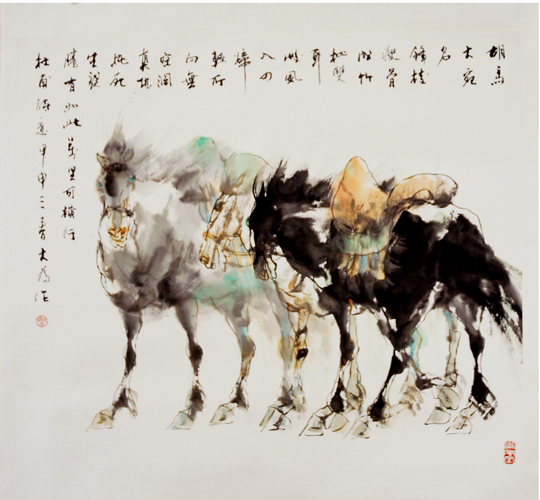 胡馬
大宛
名
鋒棱
瘦骨
成竹
批雙
耳
峻風
入四
蹄
輕所
向無
空闊
真堪
托死
生驍
騰有如此萬里可橫行
杜甫詩意甲申三春大為作